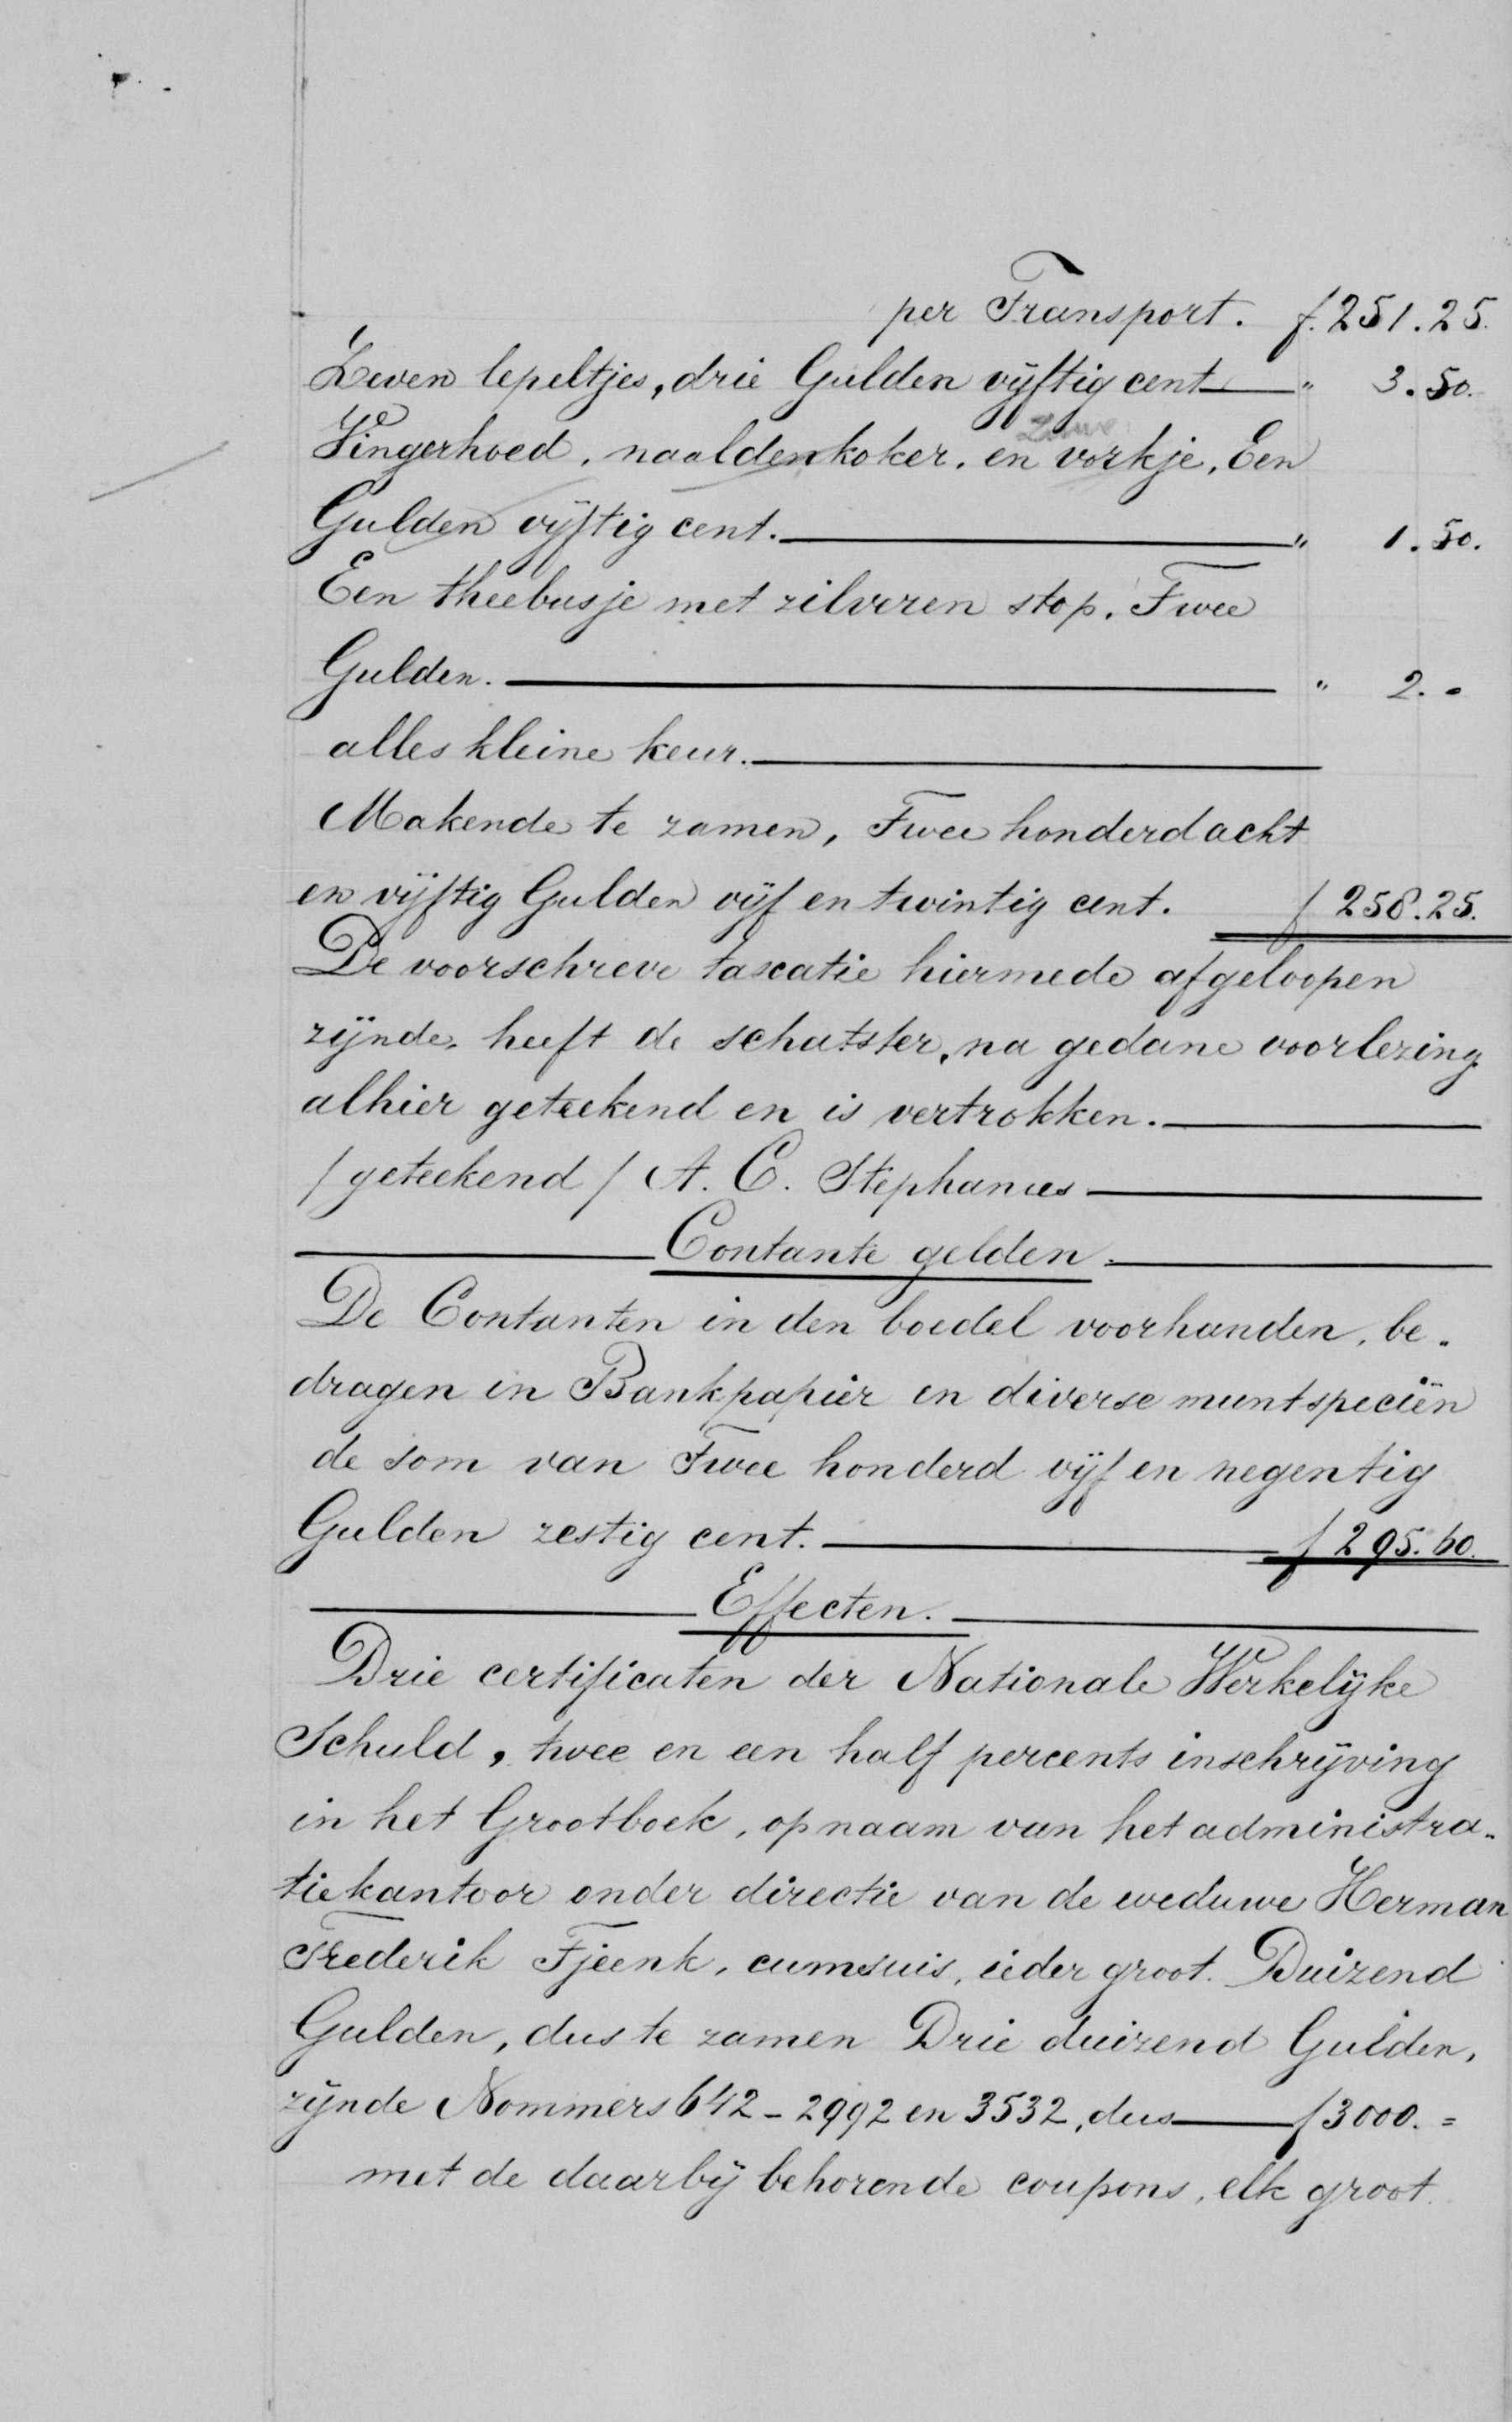 per Transport. f. 251.25.
Zeven lepeltjes, drie Gulden vijftig cent — " 3.50.
Vingerhoed, naaldenkoker, en vorkje, Een
Gulden vijftig cent. — " 1.50.
Een theebusje met zilveren stop, Twee
Gulden. — " 2.-
alles kleine keur. —
Makende te zamen, Twee honderd acht
en vijftig Gulden vijf en twintig cent. f 258.25.
De voorschreve taxatie hiermede afgeloopen
zijnde, heeft de schatster, na gedane voorlezing
alhier geteekend en is vertrokken. —
/geteekend/ A. C. Stephanus —
— Contante gelden. —
De Contanten in den boedel voorhanden, be-
dragen in Bankpapier en diverse muntspeciën
de som van Twee honderd vijf en negentig
Gulden zestig cent. — f 295.60.
— Effecten. —
Drie certificaten der Nationale Werkelijke
Schuld, twee en een half percents inschrijving
in het Grootboek, op naam van het administra-
tiekantoor onder directie van de weduwe Herman
Frederik Tjeenk, cumsuis, ieder groot. Duizend
Gulden, dus te zamen Drie duizend Gulden,
zijnde Nommers 642 - 2992 en 3532, dus — f 3000.=
met de daarbij behorende coupons, elk groot